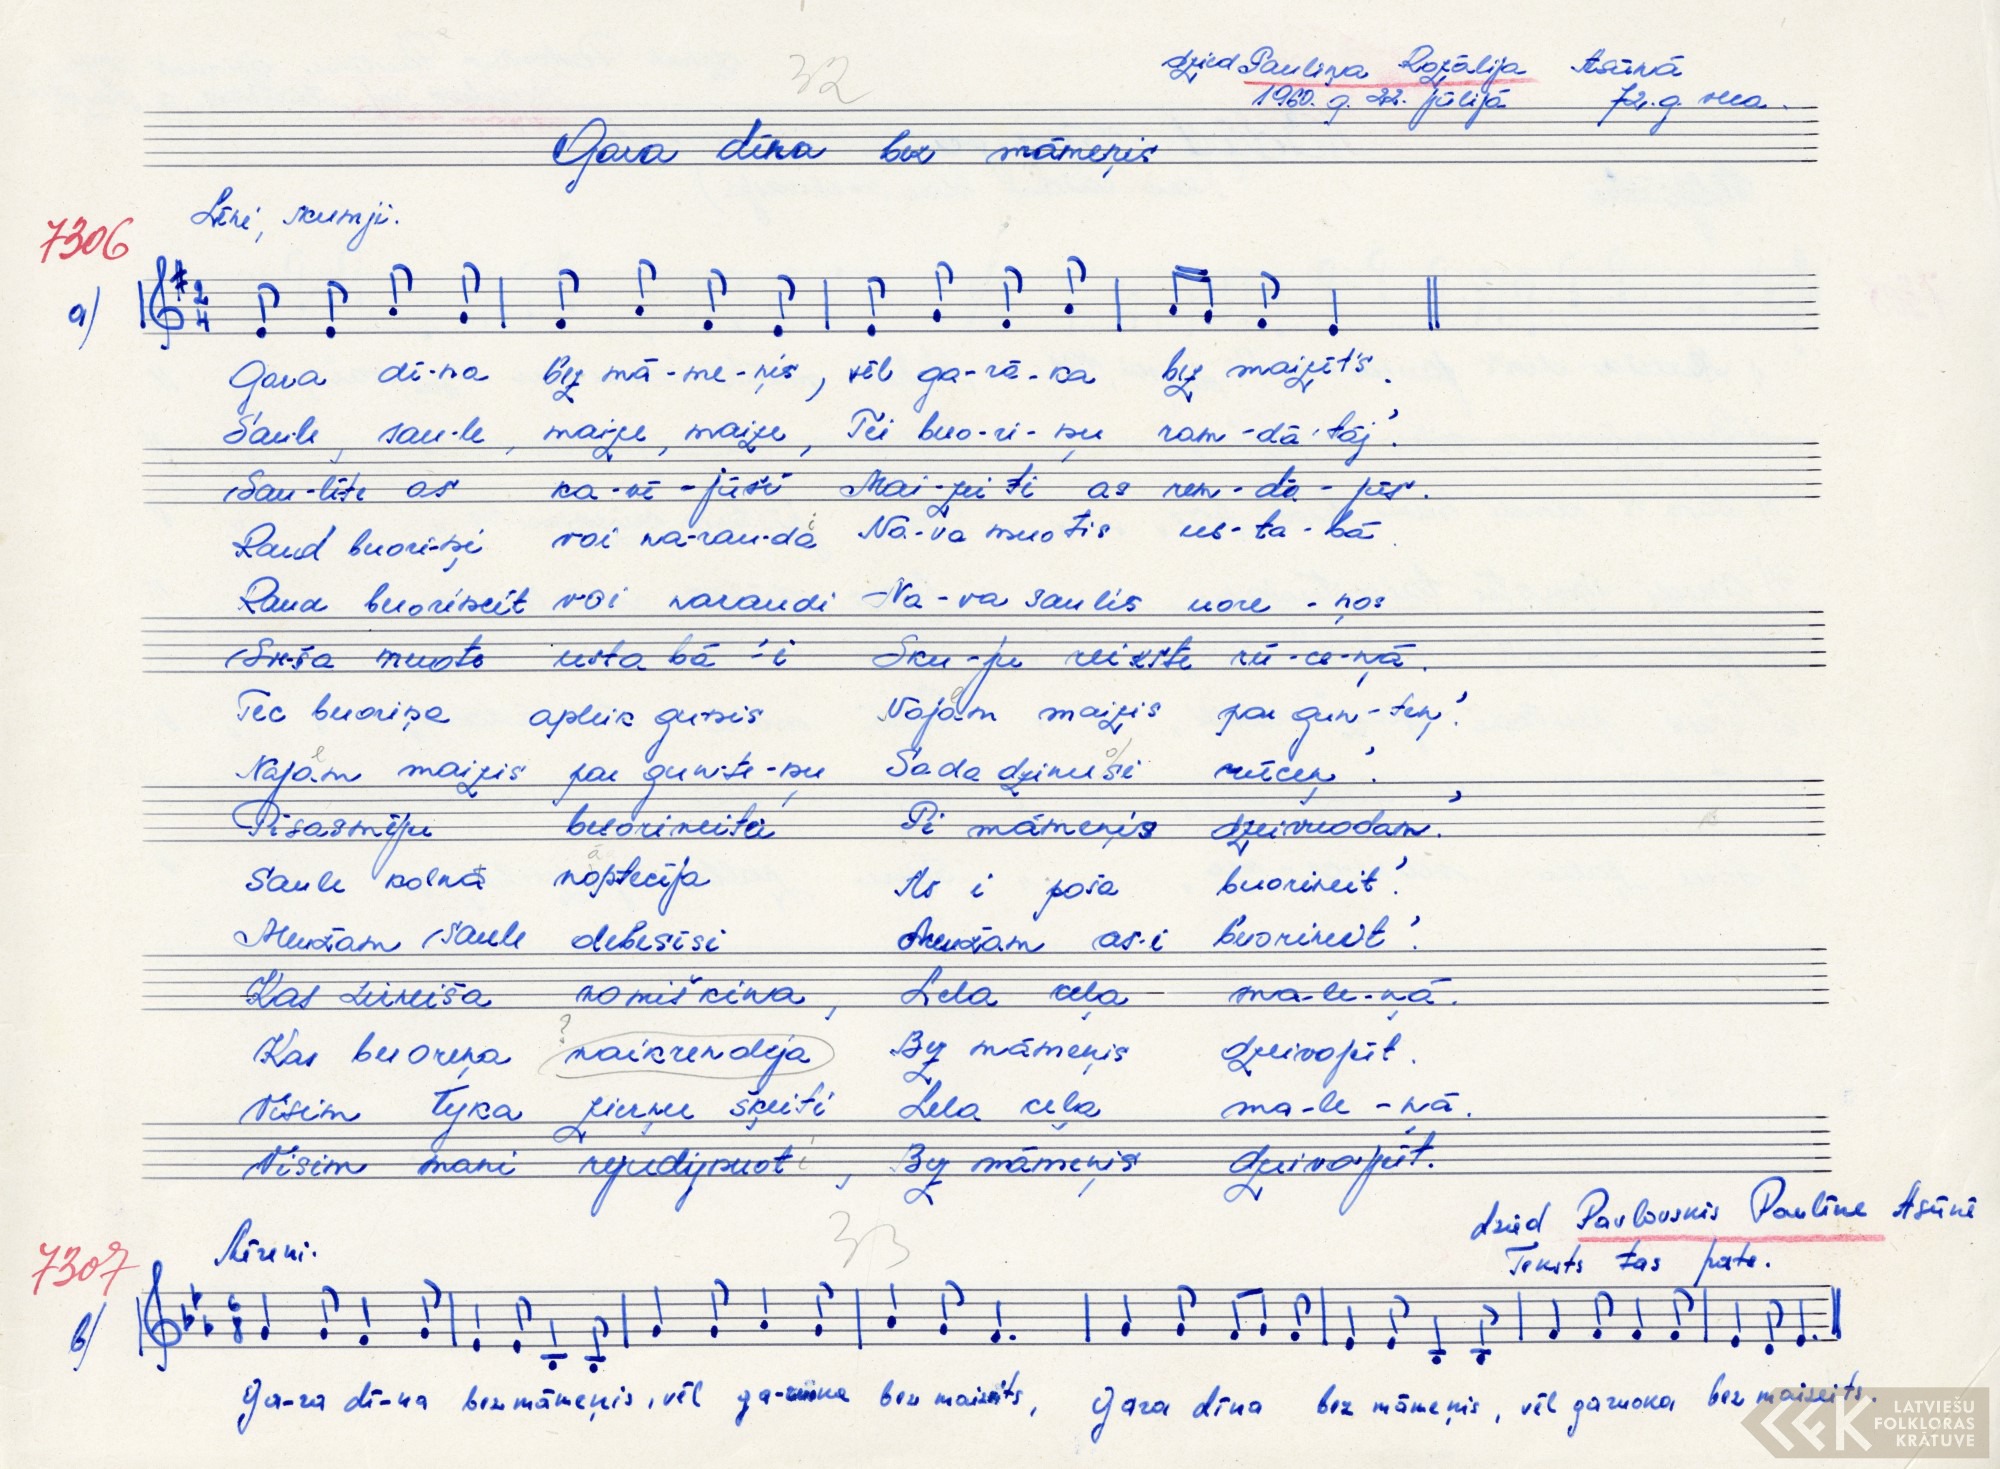 32
dzied Pauliņa Rozālija Asūnā
1960. g. 22. jūlijā 72. g. veca.
Gara dīna bez māmeņis
Lēni, skumji.
7306
a)
2
4
Gara dī-na bez mā-me-ņis, vēl ga-rā-ka bez maizīt's.
Saule, sau-le, maize, maize, Tei buo-ri-ņu ram-dā-tāj'.
Sau-līte as ka-vē-jūsi Mai-zei ti as rem-dā-jūs.
Raud buori-ņi voi na-rau-dā Na-va muotis us-ta-bā.
Raud buorineit voi naraudi Na-va saulis uore-ņos
Sve-ša muote usta bā-i Sku-ju reikste rū-ce-ņā.
Tec buoriņa apleik guņis Najām maizis par gun-teņ'.
Najām maizis par gunite-ņu Sada dzinuši rūceņ'.
Pisasmēju buorineitei Pi māmeņis dzeivuodam.'
Saule kolnā noptecīja As i poša buorineit'.
Mudžam saule debesīsi Mudžam as-i buorineit'.
Kas zirneiša nomiškina, Lela ceļa ma-le-ņā.
Kas buoreņa ? naikrendeja Bez māmeņis dzeivojūt.
Visim tyka zierņu šķeiti Lela ceļa ma-le-ņā.
Visim mani, Bez māmeņis dzeivojūt.
33
dzied Pavlovskis Paulīne Asūnē
Teksts tas pats.
Mēreni.
7307
b)
6
8
Ga-ra dī-na bez māmeņis, vēl bez maizeits, Gara dīna bez māmeņis, vēl garuoka bez maizeits.
LATVIEŠU
FOLKLORAS
KRĀTUVE